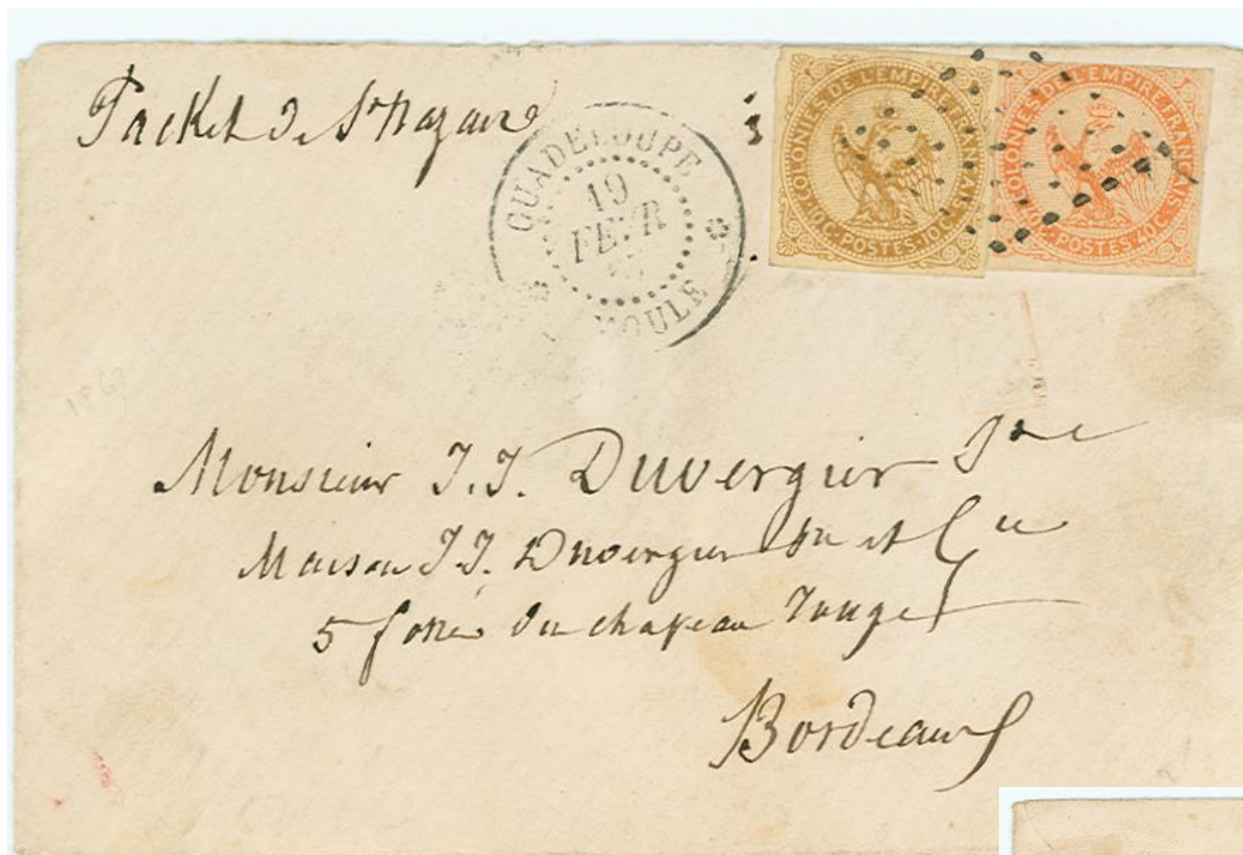 Packet de St Nazaire
GUADELOUPE
19
FEVR
MOULE
COLONIES DE L'EMPIRE FRANÇAIS
10C. POSTES. 10C.
COLONIES DE L'EMPIRE FRANÇAIS
40C. POSTES 40C.
Monsieur J.J. Duvergier Jne
Maison J.J. Duvergier et Cie
5 fossés du chapeau rouge
Bordeaux